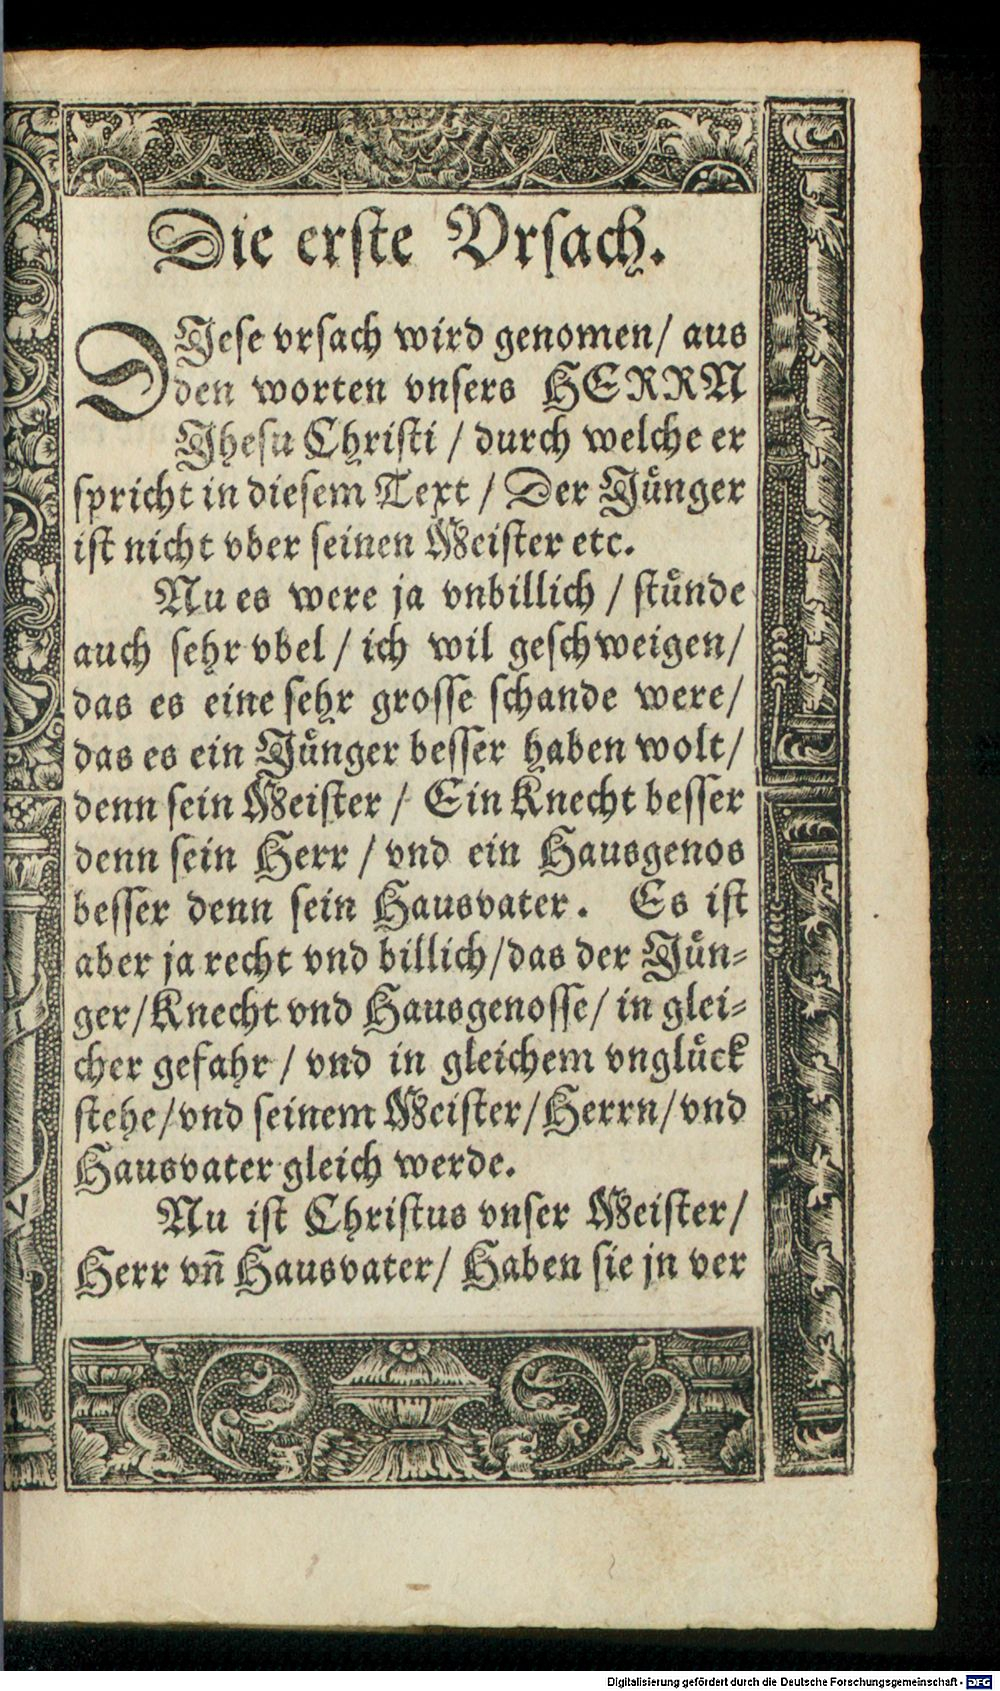 Die erste Vrsach.
DJese vrsach wird genomen/ aus
den worten vnsers HERRN
Jhesu Christi / durch welche er
spricht in diesem Text / Der Jünger
ist nicht vber seinen Meister etc.
Nu es were ja vnbillich / stünde
auch sehr vbel / ich wil geschweigen/
das es eine sehr grosse schande were/
das es ein Jünger besser haben wolt/
denn sein Meister / Ein Knecht besser
denn sein Herr / vnd ein Hausgenos
besser denn sein Hausvater. Es ist
aber ja recht vnd billich/das der Jün-
ger/Knecht vnd Hausgenosse/ in glei-
cher gefahr / vnd in gleichem vnglück
stehe/vnd seinem Meister/Herrn/vnd
Hausvater gleich werde.
Nu ist Christus vnser Meister/
Herr vñ Hausvater/ Haben sie jn ver
Digitalisierung gefördert durch die Deutsche Forschungsgemeinschaft - DFG